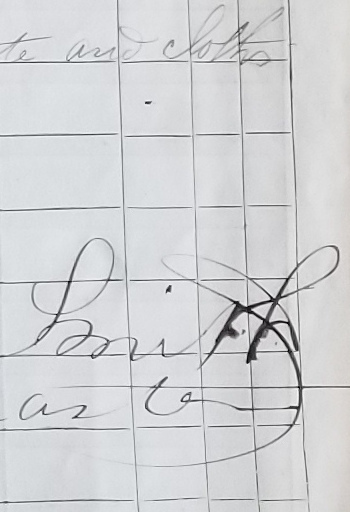 te and cloths
Smith
as